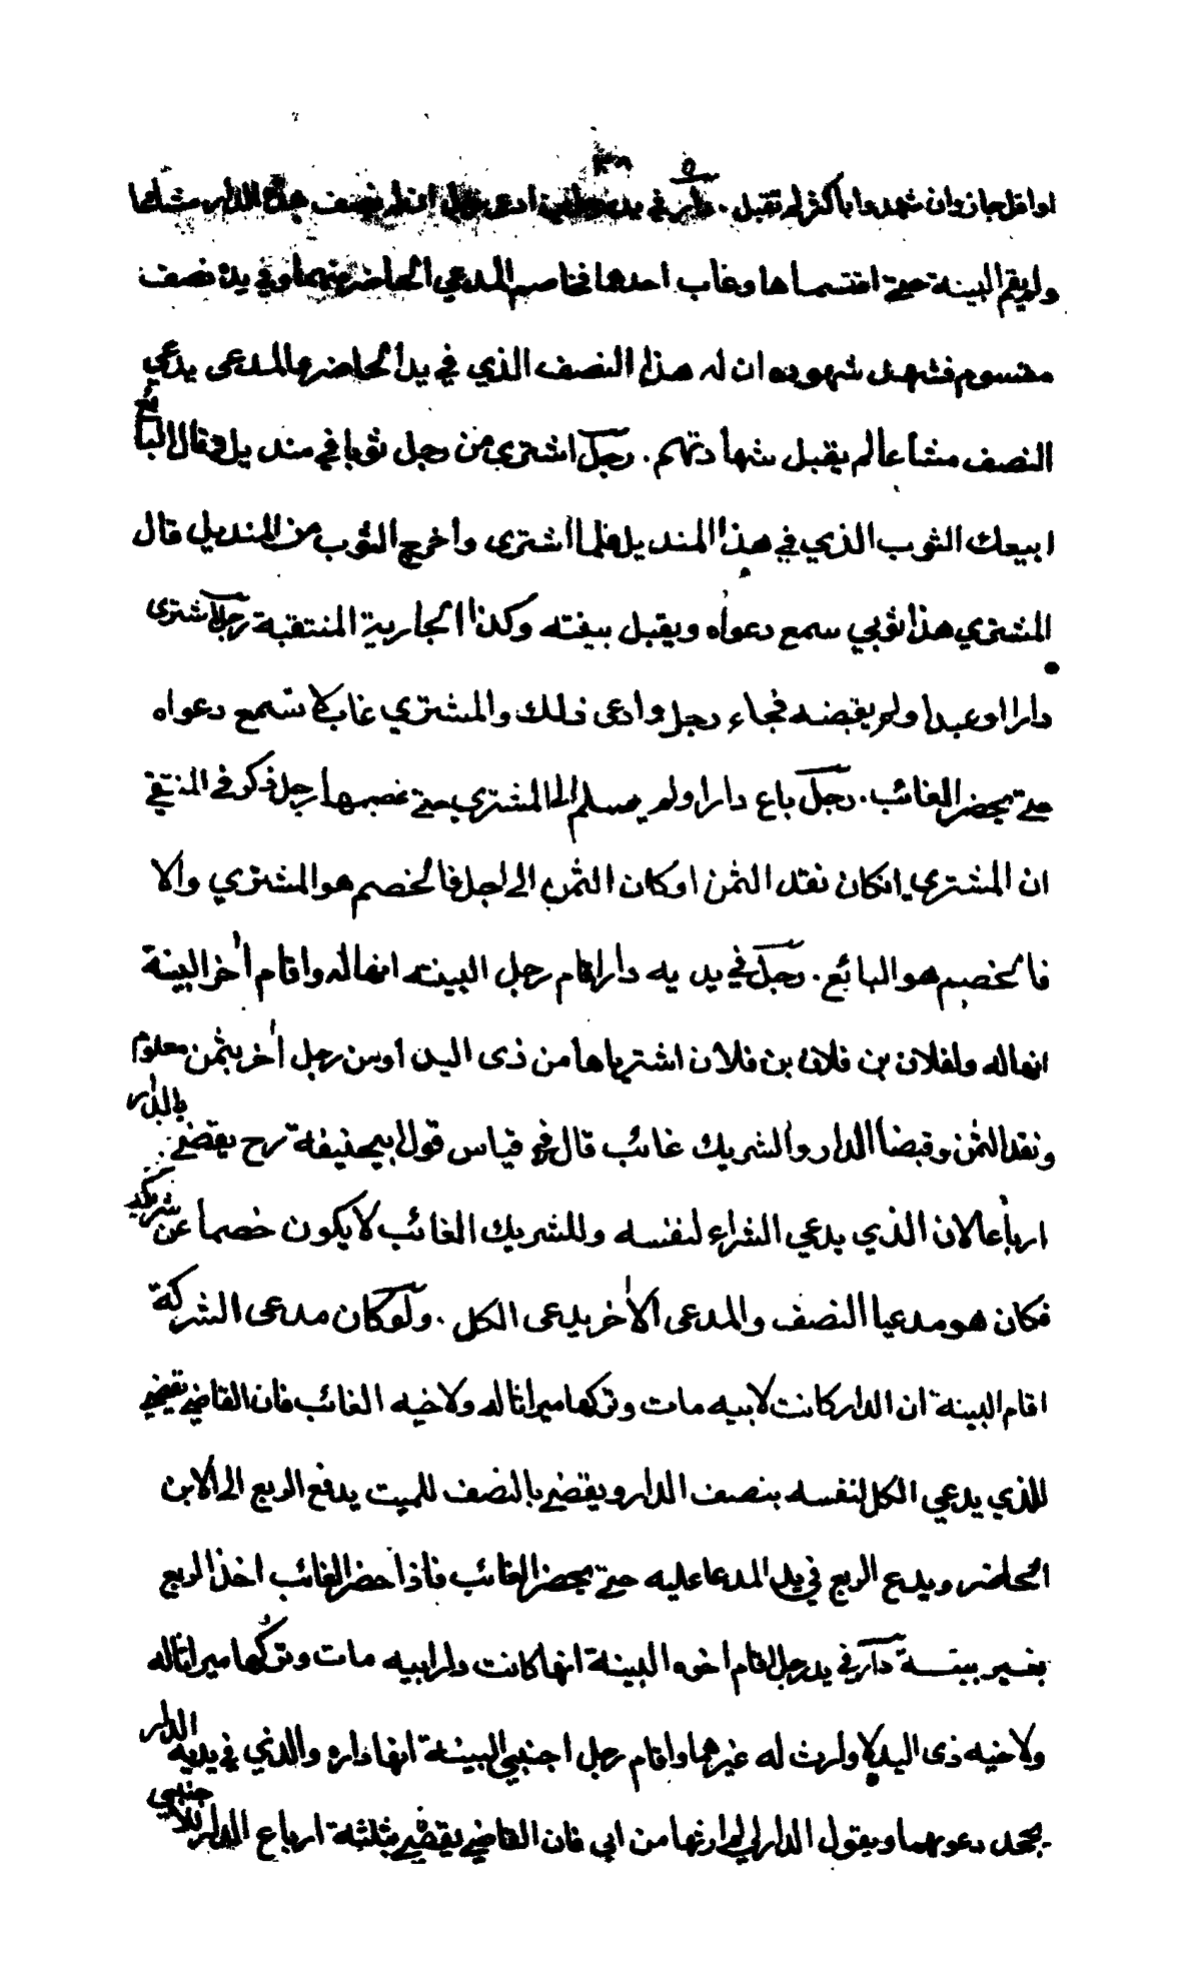 او اقل جاز وان شهدوا باكثر لم تقبل . دار في يد رجلين ادعى رجل ان له نصف هذه الدار مشاعا
ولم يقم البينة حتى اقتسماها وغاب احدهما فخاصم المدعي الحاضر منهما وفي يده نصف
مقسوم فشهد شهوده ان له هذا النصف الذي في يد الحاضر والمدعى يدعي
النصف مشاعا لم يقبل شهادتهم . رجل اشترى من رجل ثوبا في منديل وقال البائع
ابيعك الثوب الذي في هذا المنديل فلما اشترى واخرج الثوب من المنديل قال
المشتري هذا ثوبي سمع دعواه ويقبل بينته وكذا الجارية المنتقبة رجل اشترى
دارا او عبدا ولم يقبضه فجاء رجل وادعى ذلك والمشتري غاب لا تسمع دعواه
حتى يحضر الغائب . رجل باع دارا ولم يسلم الى المشتري حتى غصبها رجل ذكر في المنتقى
ان المشتري انكان نقد الثمن او كان الثمن الى اجل فالخصم هو المشتري والا
فالخصم هو البائع . رجل في يديه دار اقام رجل البينة انها له واقام اخر البينة
انها له ولفلان بن فلان بن فلان اشترياها من ذى اليد او من رجل اخر بثمن معلوم
ونقد الثمن وقبضا الدار والشريك غائب قال في قياس قول ابيحنيفة رح يقضي بالدار
ارباعا لان الذي يدعي الشراء لنفسه وللشريك الغائب لا يكون خصما عن شريكه
فكان هو مدعيا النصف والمدعى الاخر يدعى الكل . ولو كان مدعى الشركة
اقام البينة ان الدار كانت لابيه مات وتركها ميراثا له ولاخيه الغائب فان القاضي يقضي
للذي يدعي الكل لنفسه بنصف الدار ويقضي بالنصف للميت يدفع الربع الى الابن
الحاضر ويدع الربع في يد المدعا عليه حتى يحضر الغائب فاذا حضر الغائب اخذ الربع
بغير بينة دار في يد رجل اقام اخوه البينة انها كانت دار ابيه مات وتركها ميراثا له
ولاخيه ذى اليد لا وارث له غيرهما واقام رجل اجنبي البينة انها داره والذي في يديه الدار
يجحد دعوىهما ويقول الدار لي لم ارثها من ابي فان القاضي يقضي بثلثة ارباع الدار للاجنبي